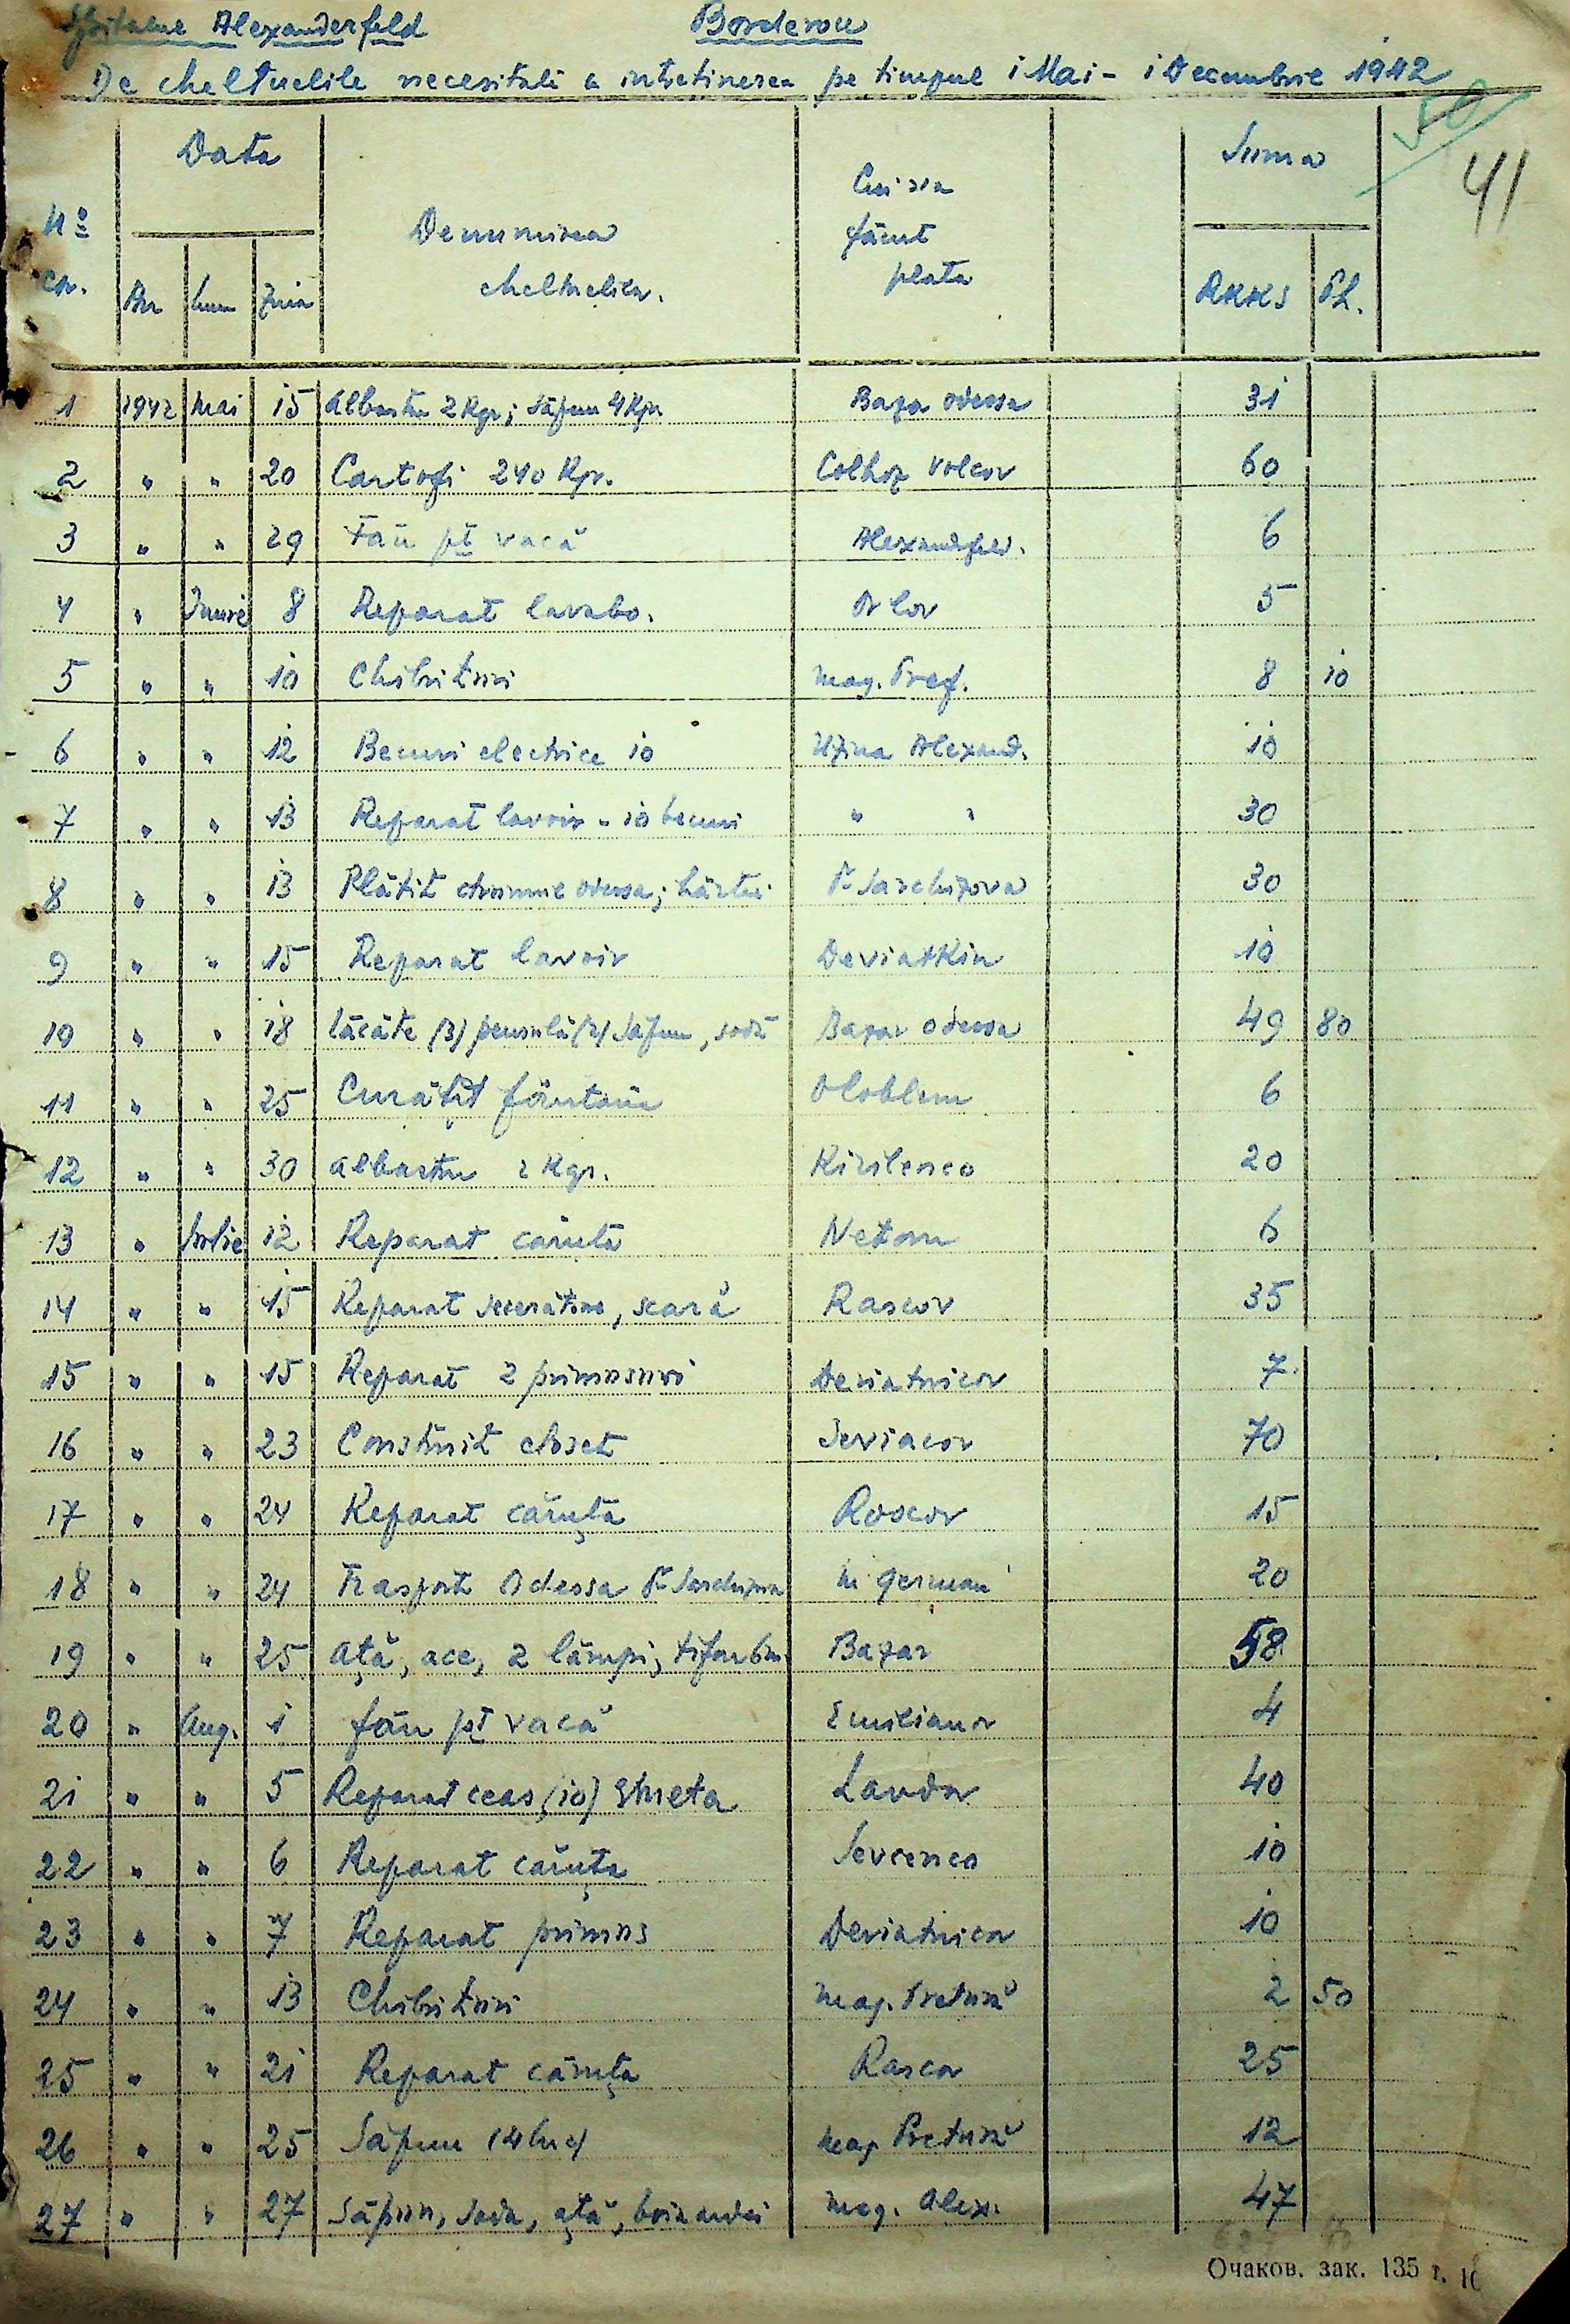 Spitalul Alexanderfeld Borderou
De cheltuelile necesitate a intretinerea pe timpul 1 Mai - 1 Decembrie 1942
50
41
No cr. Data Denumirea cheltuelilor. Cui s'a făcut plata Suma
An Luna Ziua RKKS Pf.
1 1942 Mai 15 Albastru 2 Kgr; Săpun 4 Kgr Bazar Odessa 31
2 " " 20 Cartofi 240 Kgr. Colhoz Volcov 60
3 " " 29 Fân pt vacă Alexandrfeld. 6
4 " Iunie 8 Reparat lavabo. Orlov 5
5 " " 10 Chibrituri mag. Pref. 8 10
6 " " 12 Becuri electrice 10 Uzina Alexand. 10
7 " " 13 Reparat lavoir - 10 becuri " " 30
8 " " 13 Plătit drumul Odessa; hârtie 30
9 " " 15 Reparat lavoir Deviatkin 10
10 " " 18 lăcăte (3) pensulă (2) Săpun, sodă Bazar Odessa 49 80
11 " " 25 Curățit fântâna 6
12 " " 30 Albastru 2 Kgr. Kirilenco 20
13 " Iulie 12 Reparat căruta 6
14 " " 15 Reparat secerătoare, scară Rascov 35
15 " " 15 Reparat 2 primusuri Deviatnicov 7
16 " " 23 Construit closet Seviacov 70
17 " " 24 Reparat căruța Roscov 15
18 " " 24 Trasport Odessa 20
19 " " 25 Ață, ace, 2 lămpi, tifon 6m. Bazar 58
20 " Aug. 1 fân pt vacă Emilianov 4
21 " " 5 Reparat ceas (10) Lavdov 40
22 " " 6 Reparat căruța Sevcenco 10
23 " " 7 Reparat primus Deviatnicov 10
24 " " 13 Chibrituri mag. Pretură 2 50
25 " " 21 Reparat căruța Rascov 25
26 " " 25 Săpun (4 buc) mag. Pretură 12
27 " " 27 Săpun, Soda, ață, mag. Alex. 47
Очаков. зак. 135 г.